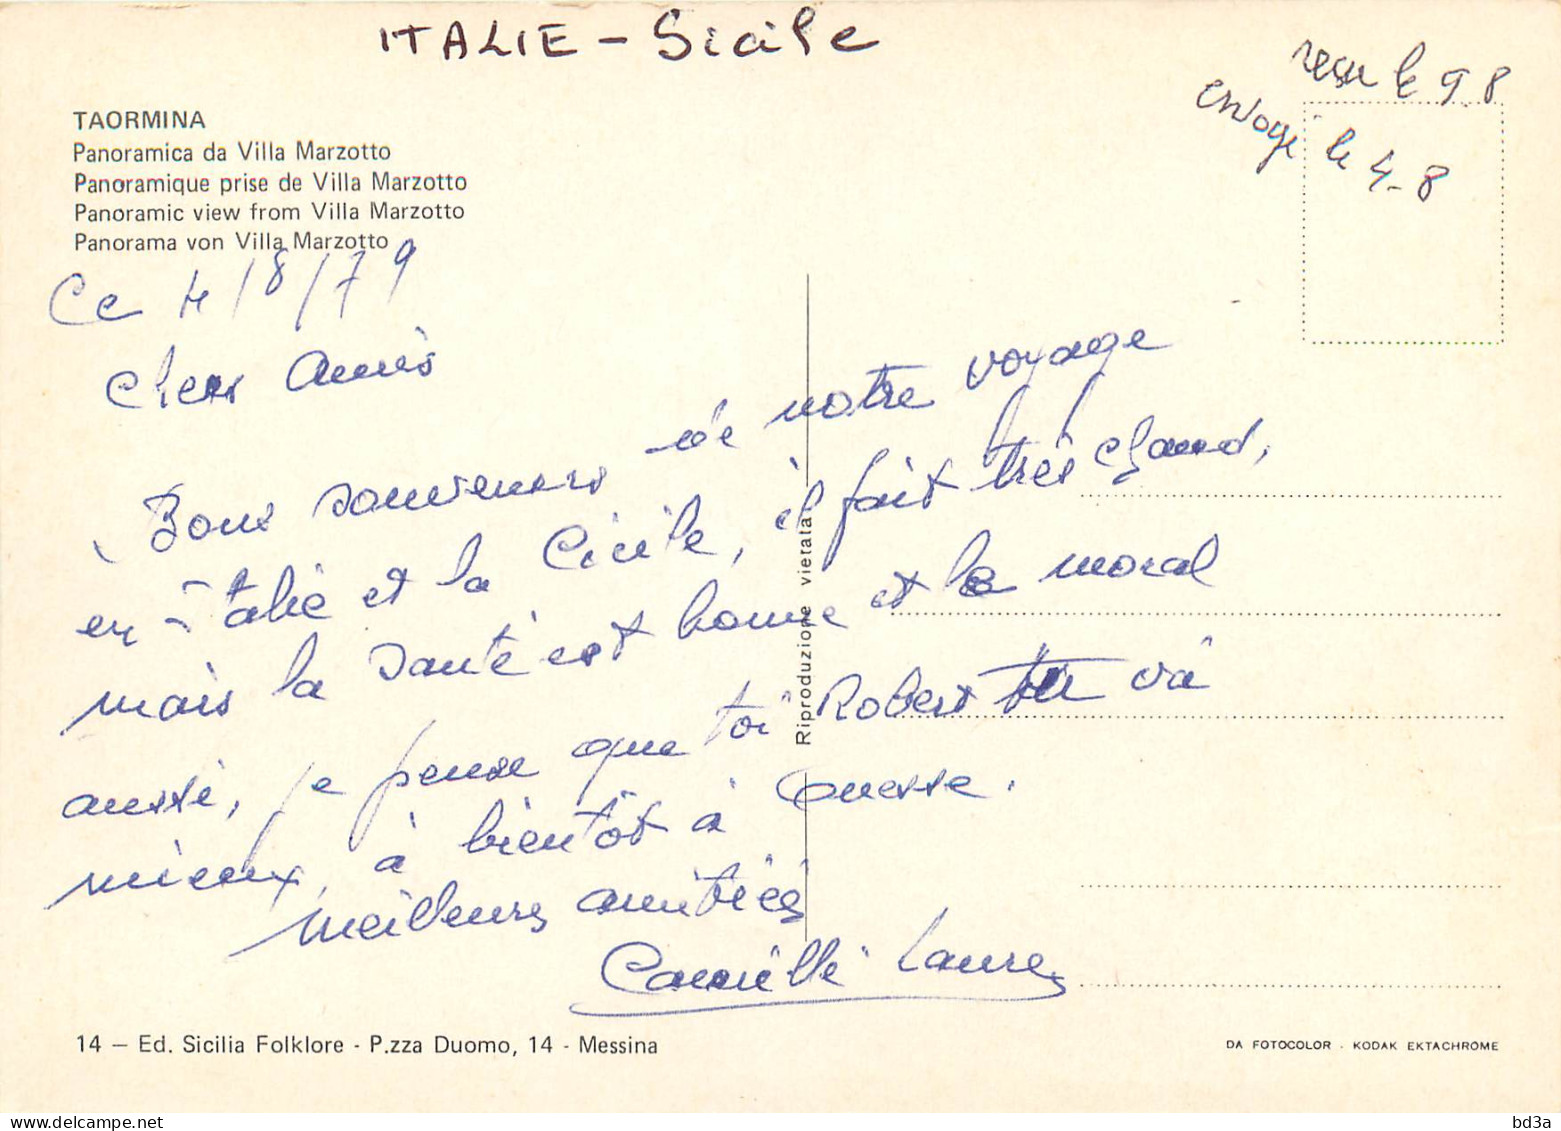 ITALIE - Sicile
reçu le 9.8
envoyé le 4-8
TAORMINA
Panoramica da Villa Marzotto
Panoramique prise de Villa Marzotto
Panoramic view from Villa Marzotto
Panorama von Villa Marzotto
Ce 4/8/79
Chers Amis
Bons souvenirs de notre voyage
en Italie et la Cicile, il fait très chaud,
mais la santé est bonne et le moral
aussi, je pense que toi Robert tu va
mieux, à bientôt à
meilleures amitiés
Camille Laure
Riproduzione vietata
14 – Ed. Sicilia Folklore - P.zza Duomo, 14 - Messina
DA FOTOCOLOR - KODAK EKTACHROME
delcampe.net
bd3a